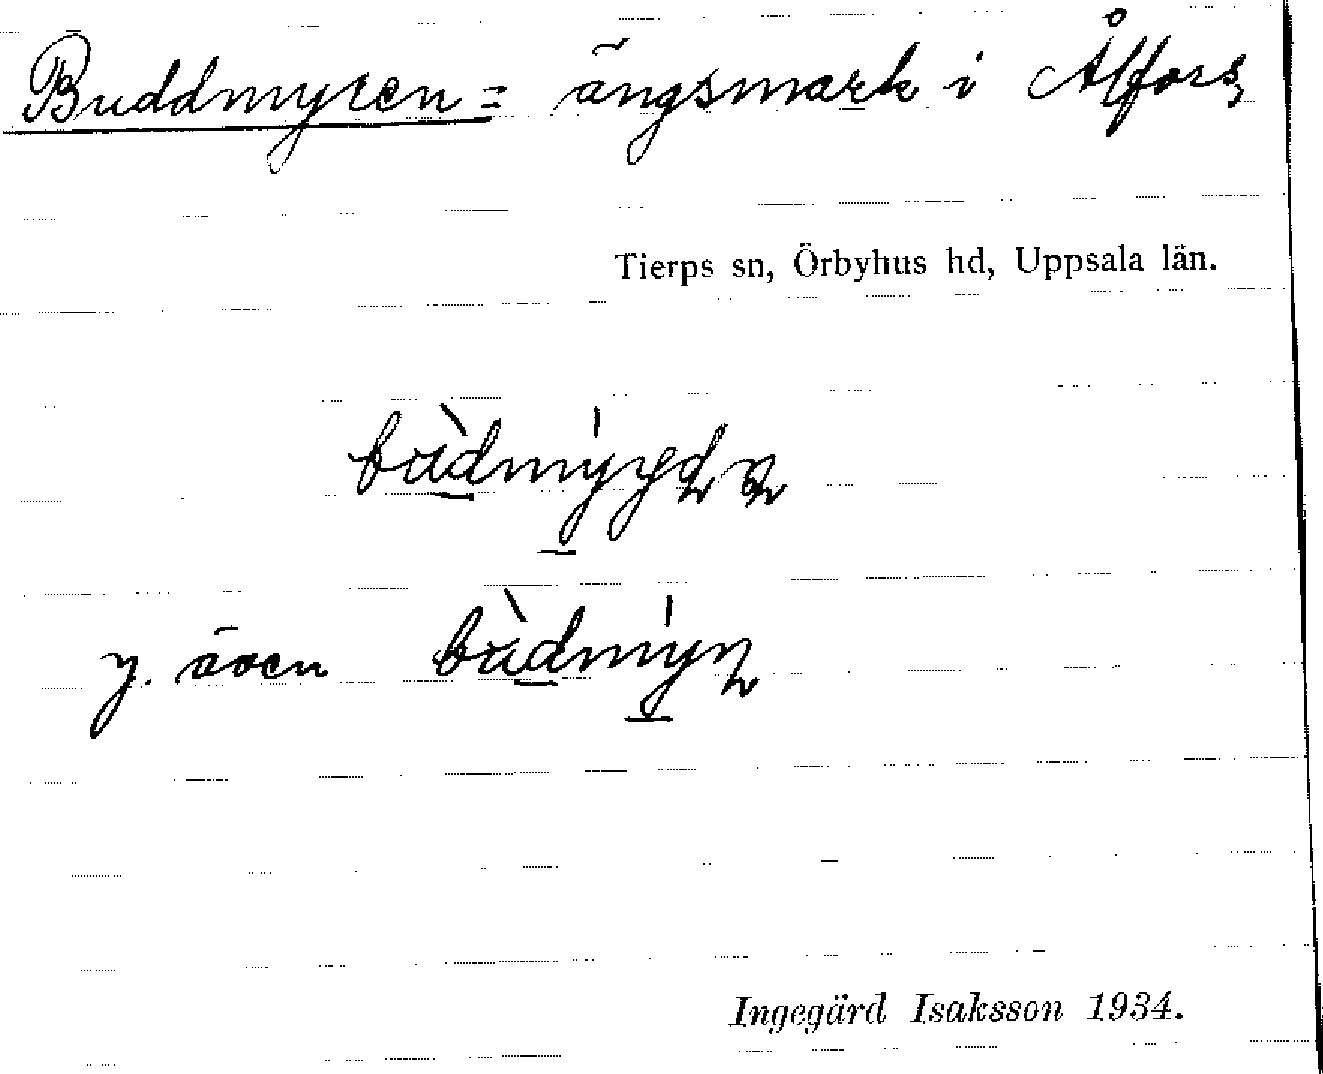 Buddmyren = ängsmark i Ålfors
Tierps sn, Örbyhus hd, Uppsala län.
y. även
Ingegärd Isaksson 1934.